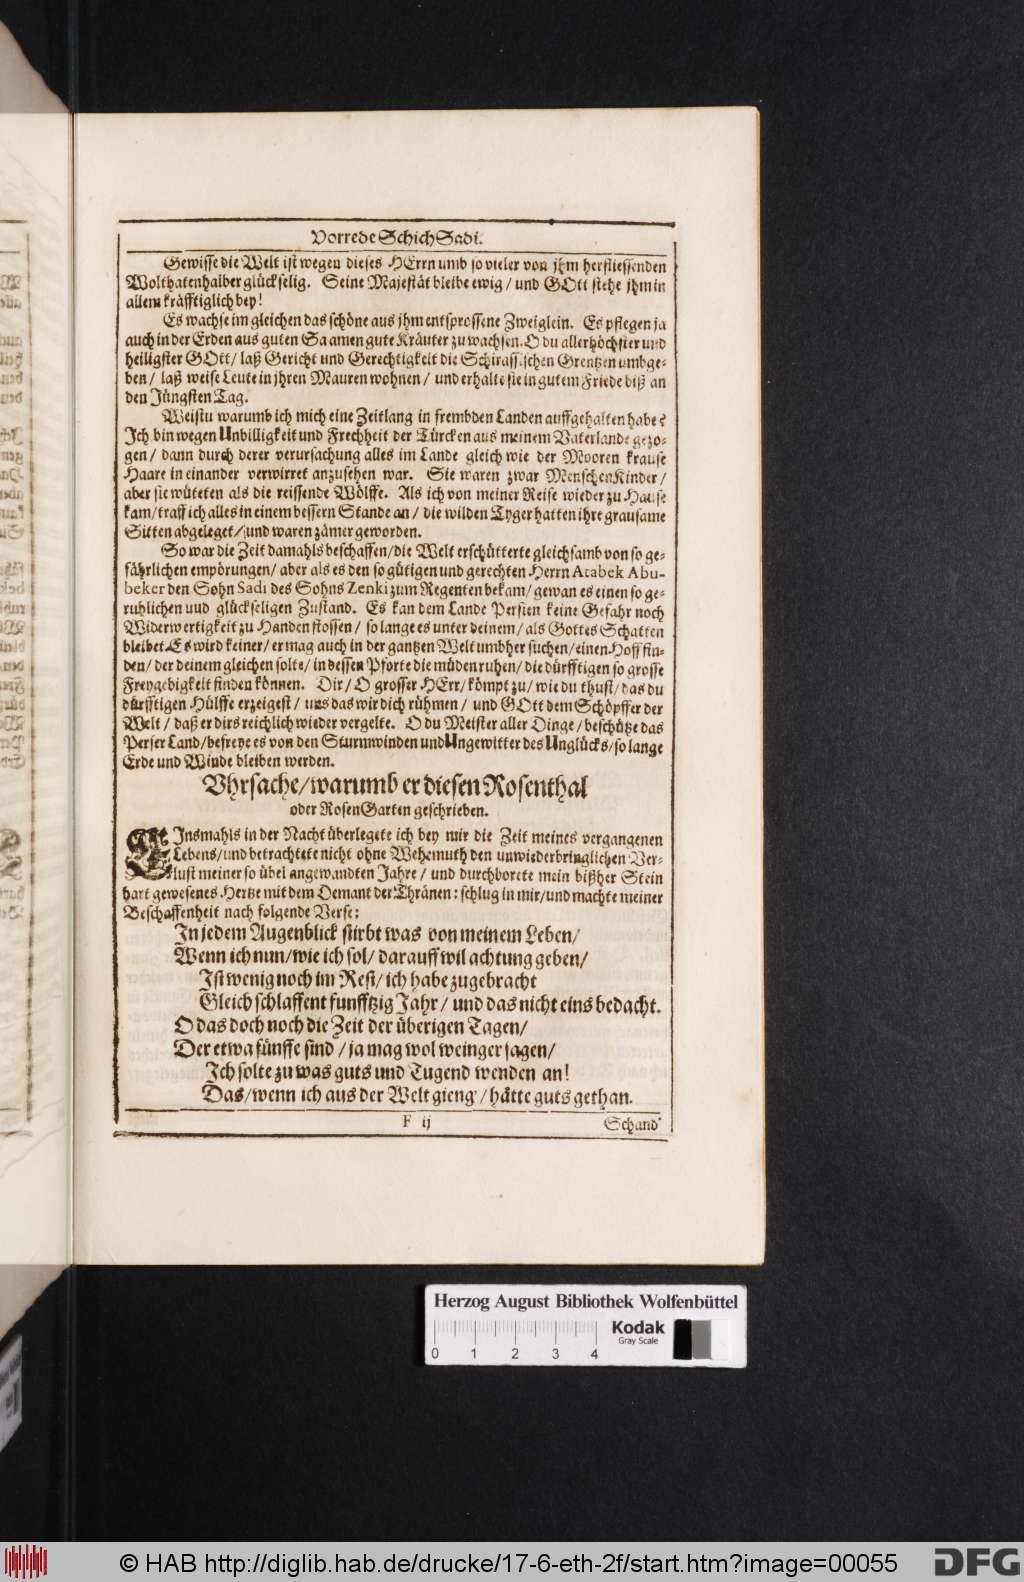 Vorrede Schich Sadi.
Gewisse die Welt ist wegen dieses HErrn umb so vieler von jhm herfliessenden
Wolthaten halber glückselig. Seine Majestät bleibe ewig / und GOtt stehe jhm in
allem kräfftiglich bey!
Es wachse im gleichen das schöne aus jhm entsprossene Zweiglein. Es pflegen ja
auch in der Erden aus guten Saamen gute Kräuter zu wachsen. O du allerhöchster und
heiligster GOtt / laß Gericht und Gerechtigkeit die Schirassischen Grentzen umbge-
ben / laß weise Leute in jhren Mauren wohnen / und erhalte sie in gutem Friede biß an
den Jüngsten Tag.
Weistu warumb ich mich eine Zeitlang in frembden Landen auffgehalten habe?
Ich bin wegen Unbilligkeit und Frechheit der Türcken aus meinem Vaterlande gezo-
gen / dann durch derer verursachung alles im Lande gleich wie der Mooren krause
Haare in einander verwirret anzusehen war. Sie waren zwar Menschen Kinder /
aber sie wüteten als die reissende Wölffe. Als ich von meiner Reise wieder zu Hause
kam / traff ich alles in einem bessern Stande an / die wilden Tyger hatten ihre grausame
Sitten abgeleget / und waren zämer geworden.
So war die Zeit damahls beschaffen / die Welt erschütterte gleichsamb von so ge-
fährlichen empörungen / aber als es den so gütigen und gerechten Herrn Atabek Abu-
beker den Sohn Sadi des Sohns Zenki zum Regenten bekam / gewan es einen so ge-
ruhlichen uud glückseligen Zustand. Es kan dem Lande Persien keine Gefahr noch
Widerwertigkeit zu Handen stossen / so lange es unter deinem / als Gottes Schatten
bleibet. Es wird keiner / er mag auch in der gantzen Welt umbher suchen / einen Hoff fin-
den / der deinem gleichen solte / in dessen Pforte die müden ruhen / die dürfftigen so grosse
Freygebigkeit finden können. Dir / O grosser HErr / kömpt zu / wie du thust / das du
dürfftigen Hülffe erzeigest / uns das wir dich rühmen / und GOtt dem Schöpffer der
Welt / daß er dirs reichlich wieder vergelte. O du Meister aller Dinge / beschütze das
Perser Land / befreye es von den Sturmwinden und Ungewitter des Unglücks / so lange
Erde und Winde bleiben werden.
Vhrsache / warumb er diesen Rosenthal
oder Rosen Garten geschrieben.
EInsmahls in der Nacht überlegete ich bey mir die Zeit meines vergangenen
Lebens / und betrachtete nicht ohne Wehemuth den unwiederbringlichen Ver-
lust meiner so übel angewandten Jahre / und durchborete mein bißher Stein
hart gewesenes Hertze mit dem Demant der Thränen: schlug in mir / und machte meiner
Beschaffenheit nach folgende Verse:
In jedem Augenblick stirbt was von meinem Leben /
Wenn ich nun / wie ich sol / darauff wil achtung geben /
Ist wenig noch im Rest / ich habe zugebracht
Gleich schlaffent funfftzig Jahr / und das nicht eins bedacht.
O das doch noch die Zeit der überigen Tagen /
Der etwa fünffe sind / ja mag wol weinger sagen /
Ich solte zu was guts und Tugend wenden an!
Das / wenn ich aus der Welt gieng / hätte guts gethan.
F ij
Schand'
Herzog August Bibliothek Wolfenbüttel
0 1 2 3 4
Kodak
Gray Scale
© HAB http://diglib.hab.de/drucke/17-6-eth-2f/start.htm?image=00055
DFG